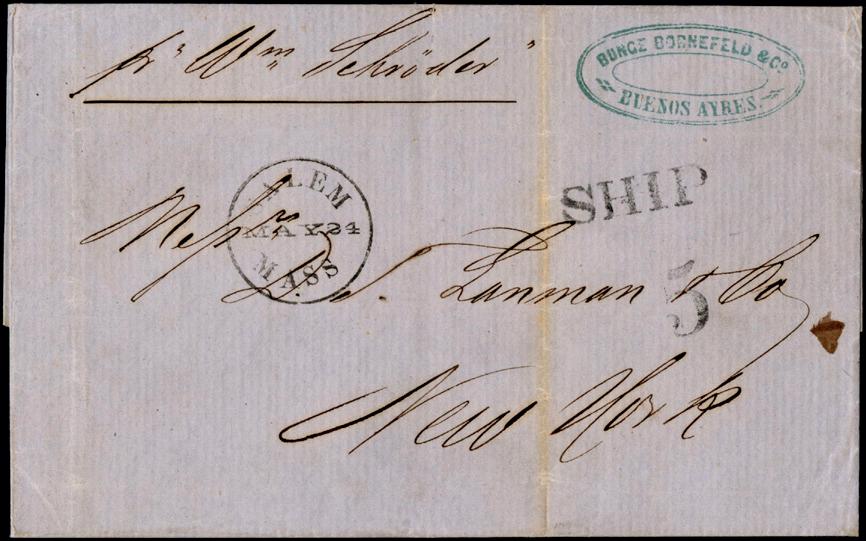 pr "Wm Schröder"
BUNGE BORNEFELD & Co.
BUENOS AYRES.
SHIP
SALEM
MAY 24
MASS
Messrs D. S. Lanman & Co
5
New York